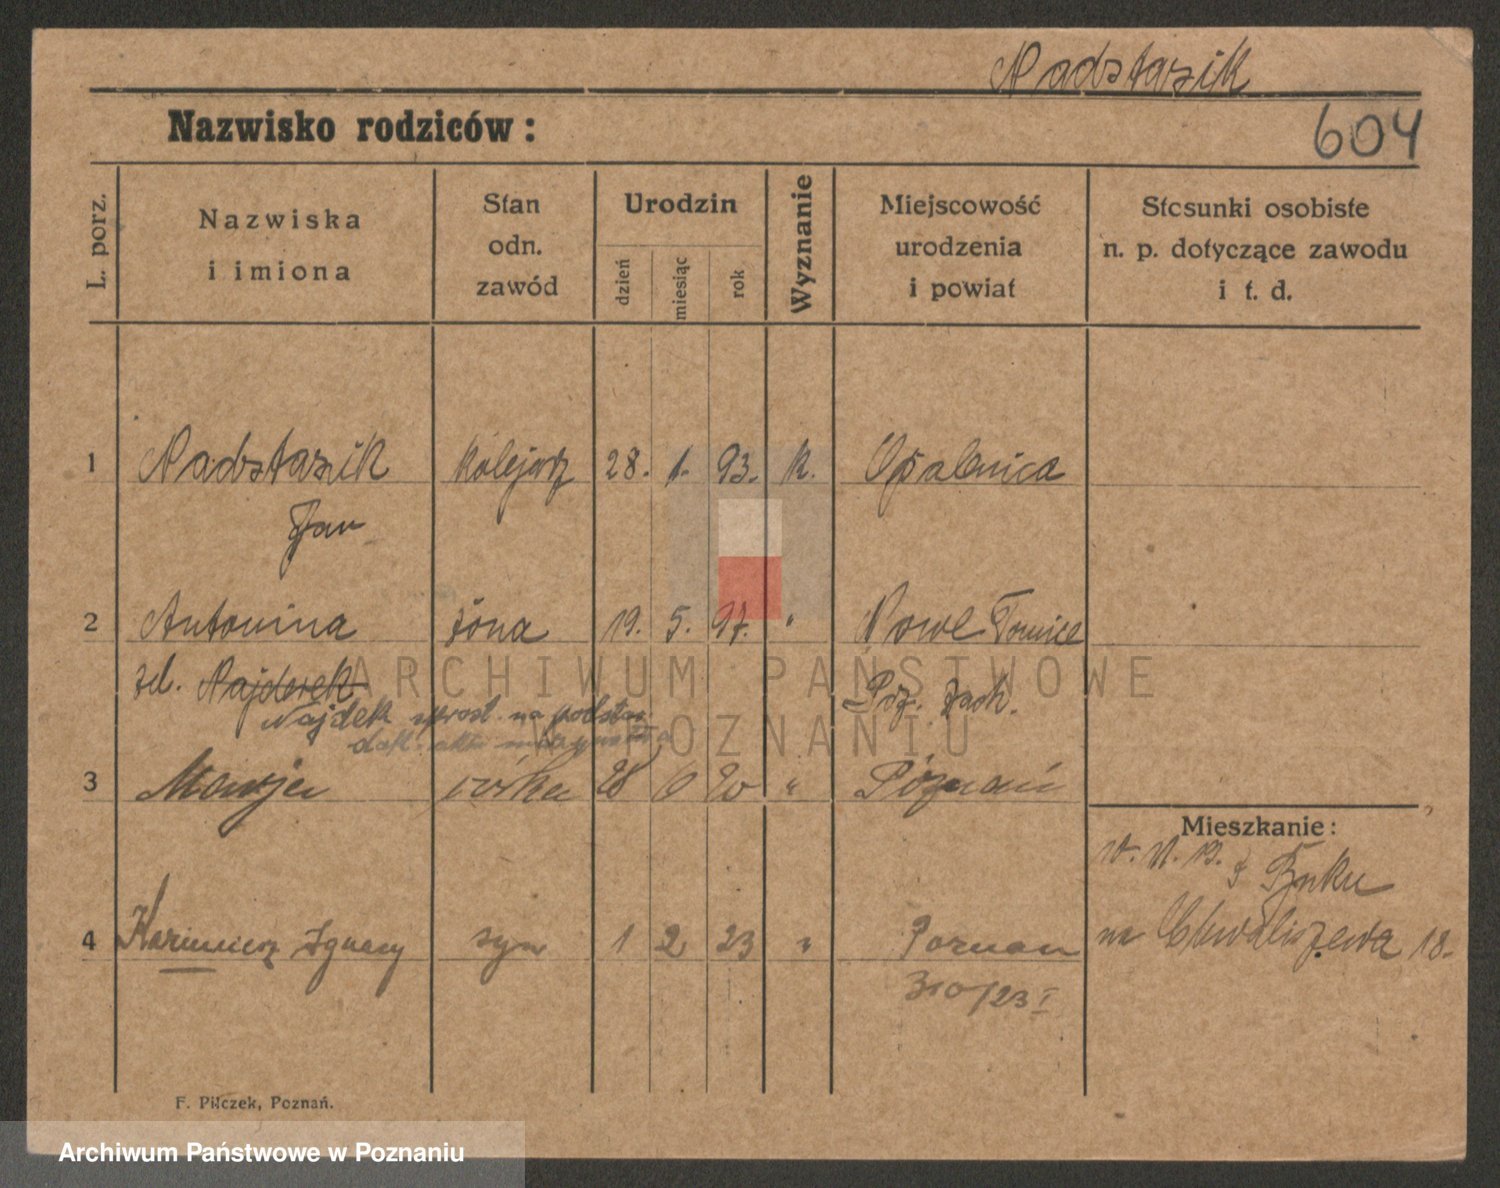 Nadstazik
Nazwisko rodziców :
604
L. porz.
Nazwiska
i imiona
Stan
odn.
zawód
Urodzin
dzień
miesiąc
rok
Wyznanie
Miejscowość
urodzenia
i powiat
Stosunki osobiste
n. p. dotyczące zawodu
i t. d.
1 Nadstazik kolejarz 28. 1. 93. k. Opalenica
Jan
2 Antonina żona 19. 5. 97. " Nowe Tomice
zd. Najderek
Najdek sprost. na podstaw.
ARCHIWUM PAŃSTWOWE
W POZNANIU
3 Marja córka 28 6 20 " Poznań
Mieszkanie :
Buku
4 Kazimierz Ignacy syn 1 2 23 " Poznan
310/23 I
na Chwaliszewa 18.
F. Pilczek, Poznań.
Archiwum Państwowe w Poznaniu